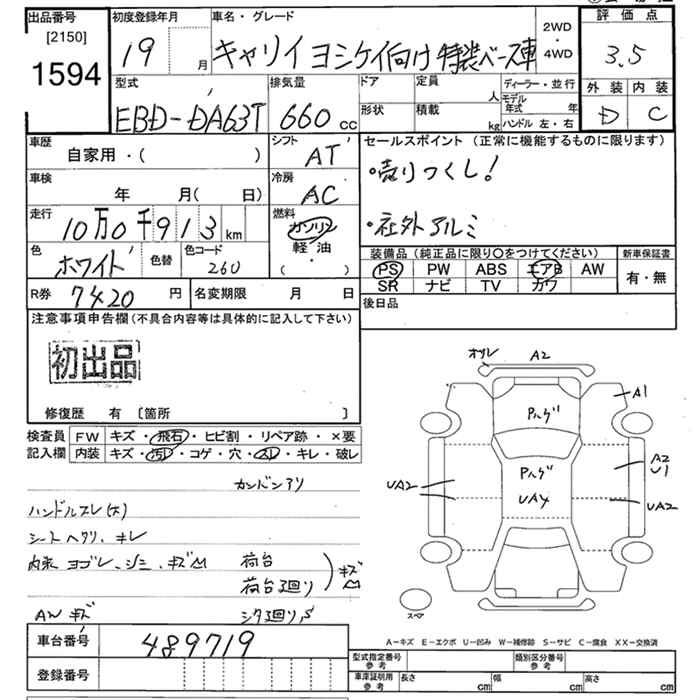 出品番号
[2150]
1594
初度登録年月
19
月
車名・グレード
キャリイ ヨシケイ向け 特装ベース車
2WD
・
4WD
評価点
3.5
外装 内装
D C
型式
EBD-DA63T
排気量
660 cc
ドア
形状
定員
人
積載
kg
ディーラー・並行
モデル
年式 年
ハンドル 左・右
車歴
自家用・( )
シフト
AT
車検
年 月( 日)
冷房
AC
走行
10万0千913 km
燃料
ガソリン
軽油
( ・ )
色
ホワイト
色替
色コード
260
R券 7420 円
名変期限 月 日
セールスポイント (正常に機能するものに限ります)
・売りつくし!
・社外アルミ
装備品 (純正品に限り〇をつけてください)
PS PW ABS エアB AW
SR ナビ TV カワ
新車保証書
有・無
後日品
注意事項申告欄(不具合内容等は具体的に記入して下さい)
初出品
修復歴 有 [箇所 ]
検査員
記入欄
FW キズ・飛石・ヒビ割・リペア跡・×要
内装 キズ・汚レ・コゲ・穴・スレ・キレ・破レ
カンバンアリ
ハンドルスレ(大)
シートヘタリ、キレ
内装 ヨゴレ、シミ、キズM
荷台
荷台廻リ
キズM
AW キズ
シタ廻リS
A2
A1
Pハゲ
Pハゲ
UA4
A2
U1
UA2
UA2
スペア
A-キズ E-エクボ U-凹み W-補修跡 S-サビ C-腐食 XX-交換済
車台番号 489719
登録番号
型式指定番号
参考
類別区分番号
参考
車庫証明用
参考
長さ cm
幅 cm
高さ cm